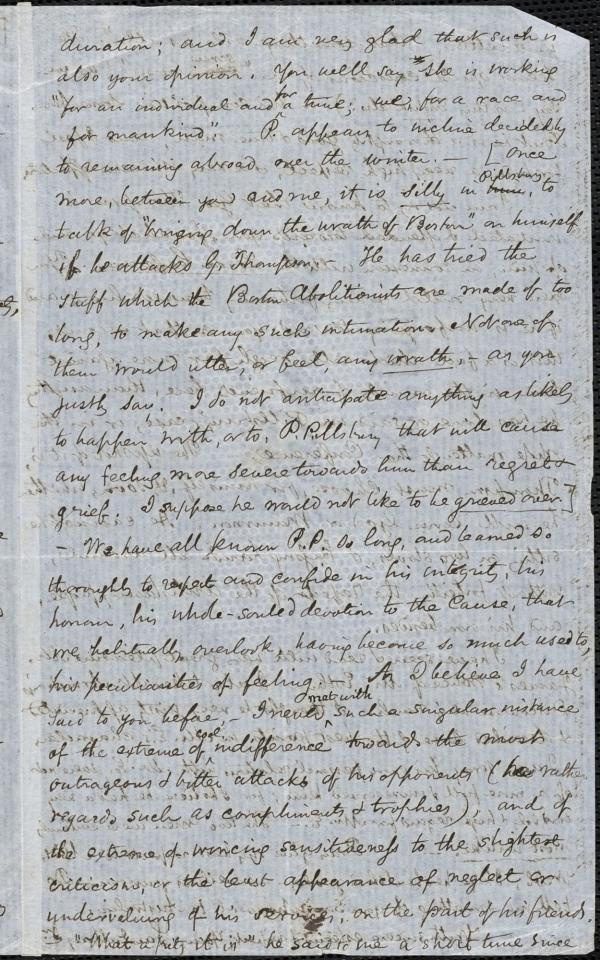 duration; and I am very glad that such is
also your opinion. You well say "She is working
"for an individual and for a time; we, for a race and
for mankind". P. appears to incline decidedly
to remaining abroad over the winter. — [Once
more, between you and me, it is silly in Pillsbury, to
talk of "bringing down the wrath of Boston" on himself
if he attacks G. Thompson. — He has tried the
stuff which the Boston Abolitionists are made of too
long, to make any such intimation. Not one of
them would utter, or feel, any wrath, — as you
justly say. I do not anticipate anything as likely
to happen with, or to, P. Pillsbury that will cause
any feeling more severe towards him than regret &
grief. I suppose he would not like to be grieved over]
— We have all known P.P. so long, and learned so
thoroughly to respect and confide in his integrity, his
honour, his whole-souled devotion to the Cause, that
we habitually overlook, having become so much used to,
his peculiarities of feeling. — As I believe I have
said to you before, — I never met with such a singular instance
of the extreme of cool indifference towards the most
outrageous & bitter attacks of his opponents (he rather
regards such as compliments & trophies), and of
the extreme of wincing sensitiveness to the slightest
criticism, or the least appearance of neglect or
undervaluing of his services, on the part of his friends.
— "What a pity it is" he said to me a short time since